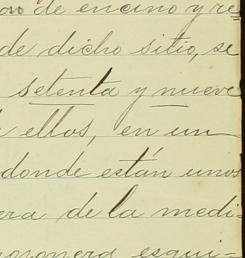 de encino y re=
de dicho sitio, se
setenta y nueve
ellos, en un
donde están unos
era de la medi-
esqui-